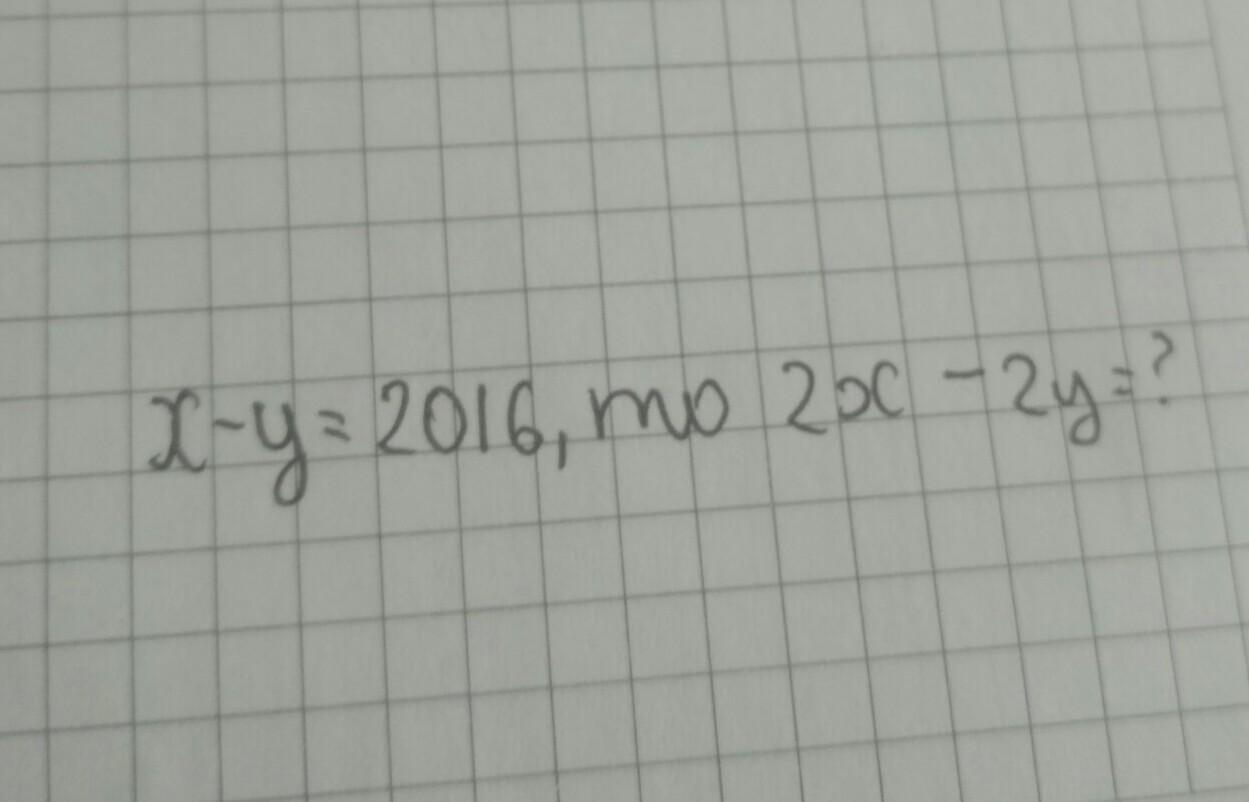 x-y=2016, то 2x-2y=?